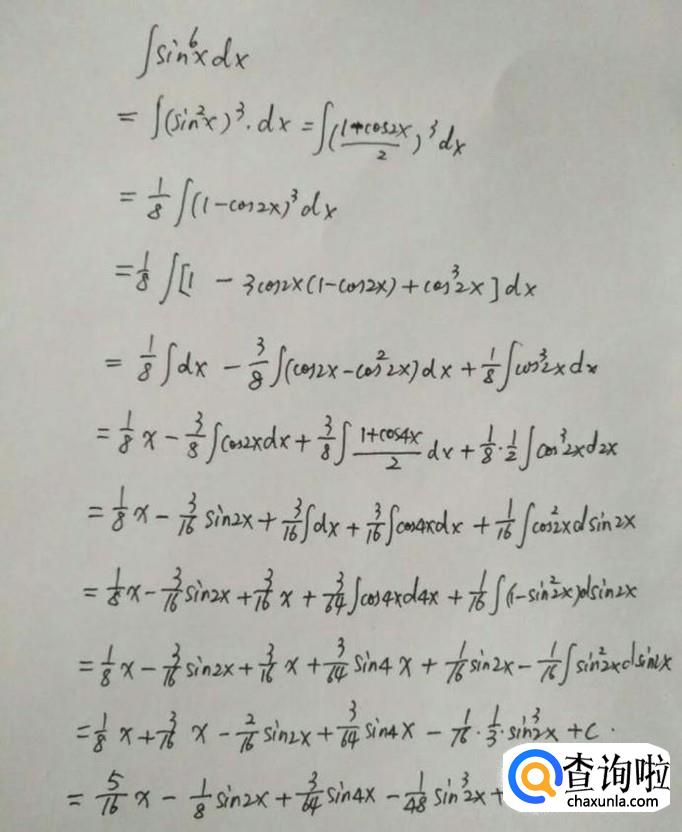 ∫sin⁶xdx
= ∫(sin²x)³·dx = ∫(1-cos2x/2)³dx
= 1/8 ∫(1-cos2x)³dx
= 1/8 ∫[1 - 3cos2x(1-cos2x) + cos³2x]dx
= 1/8 ∫dx - 3/8 ∫(cos2x-cos²2x)dx + 1/8 ∫cos³2xdx
= 1/8 x - 3/8 ∫cos2xdx + 3/8 ∫ 1+cos4x/2 dx + 1/8·1/2 ∫cos³2xd2x
= 1/8 x - 3/16 sin2x + 3/16 ∫dx + 3/16 ∫cos4xdx + 1/16 ∫cos²2xdsin2x
= 1/8 x - 3/16 sin2x + 3/16 x + 3/64 ∫cos4xd4x + 1/16 ∫(1-sin²2x)dsin2x
= 1/8 x - 3/16 sin2x + 3/16 x + 3/64 sin4x + 1/16 sin2x - 1/16 ∫sin²2xdsin2x
= 1/8 x + 3/16 x - 2/16 sin2x + 3/64 sin4x - 1/16·1/3 sin³2x + C.
= 5/16 x - 1/8 sin2x + 3/64 sin4x - 1/48 sin³2x +
查询啦
chaxunla.com